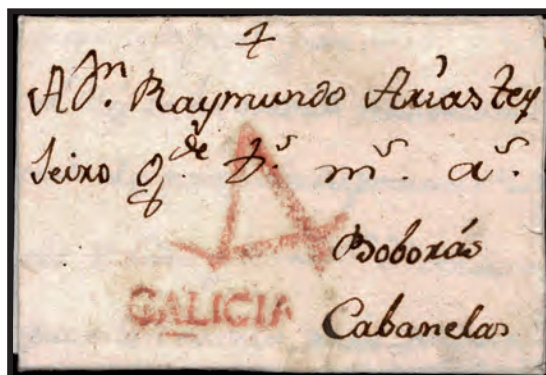 A Dn. Raymundo Arias Tey
seixo g.de D.s m.s a.s
4
Boborás
GALICIA
Cabanelas